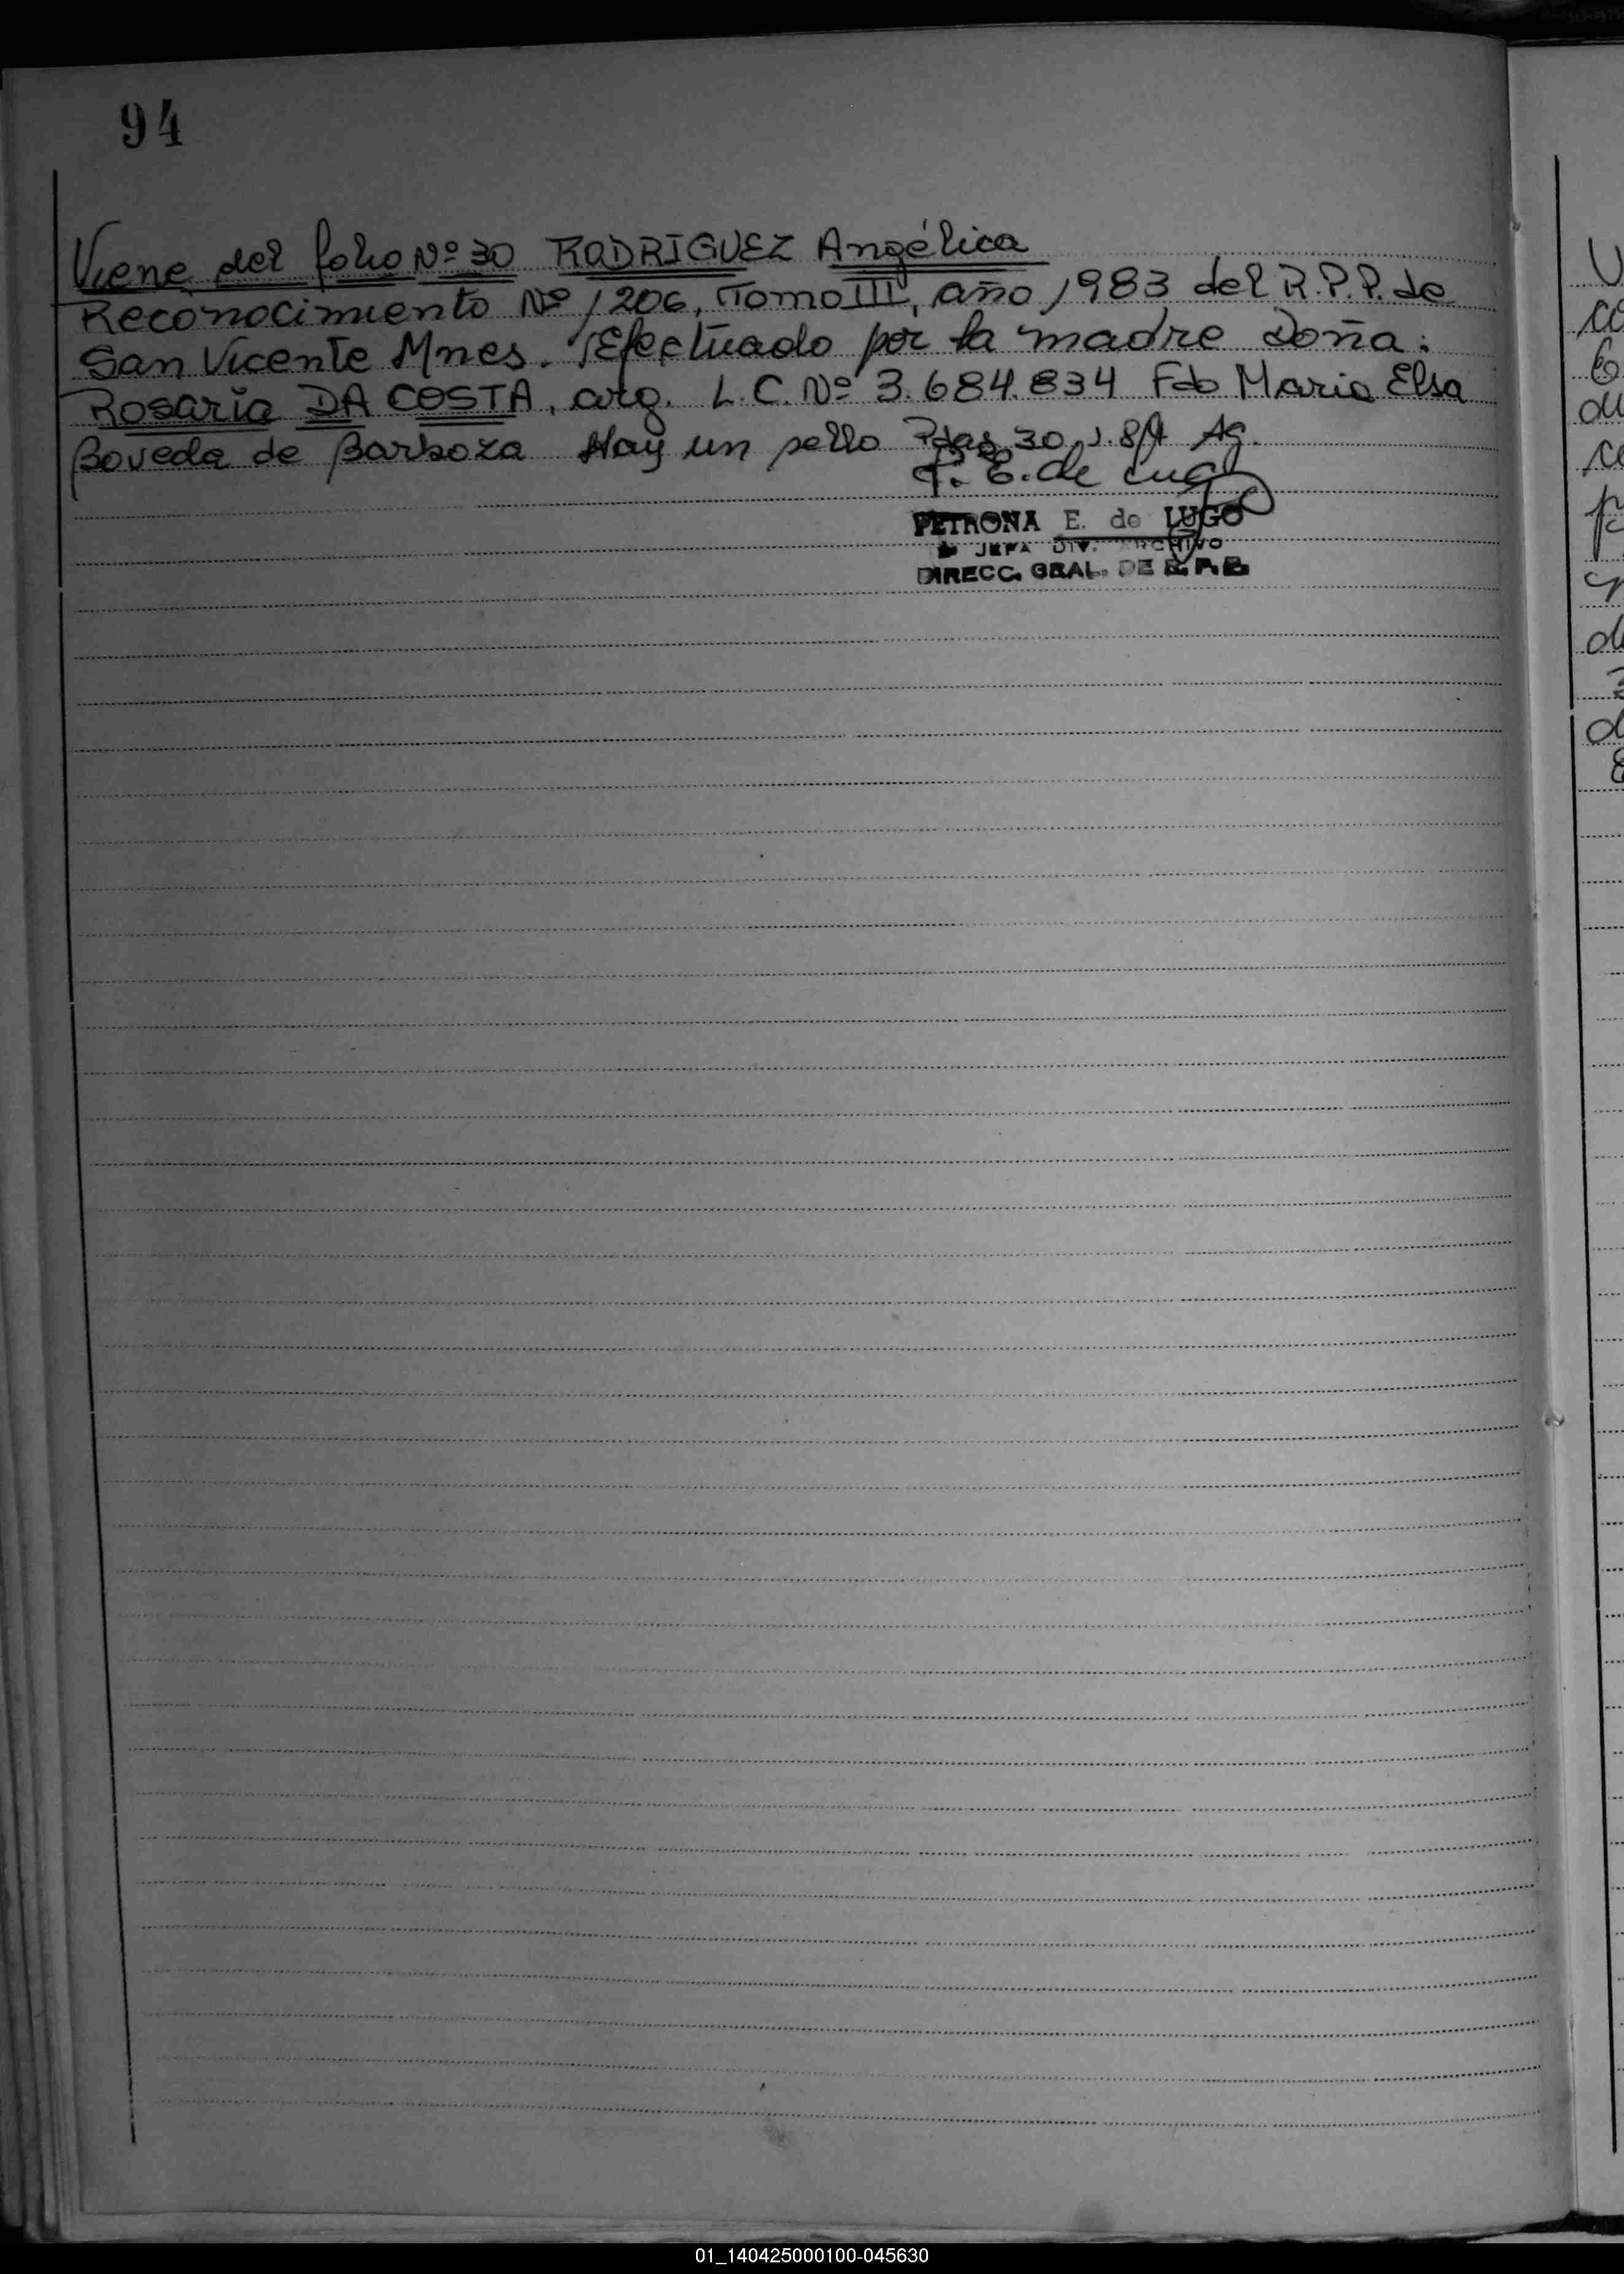 94
Viene del folio Nº 30 RODRIGUEZ Angélica
Reconocimiento Nº 1206, Tomo III, año 1983 del R.P.P. de
San Vicente Mnes. Efectuado por la madre Doña:
Rosaria DA COSTA, arg. L.C. Nº 3.684.834 Fdo Maria Elsa
Boveda de Barboza Hay un sello Pdas 30.1.84 Ag.
P. E. de Lugo
PETRONA E. de LUGO
JEFA DIV. ARCHIVO
DIRECC. GRAL. DE R. P. P.
01_140425000100-045630